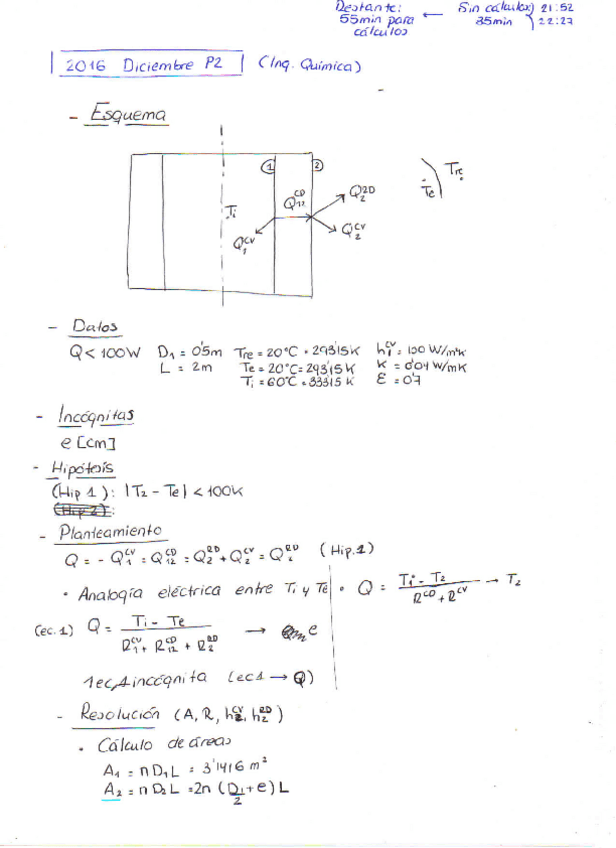 Restante: ← Sin cálculos) 21:52
55min para 35min 22:27
cálculos
2016 Diciembre P2 (Ing. Química)
- Esquema
① ②
Ti Q12^CD Q2^RD Tre
Te
Q1^CV Q2^CV
- Datos
Q < 100W D1 = 0'5m Tre = 20°C = 293'15K h1^CV = 100 W/m²K
L = 2m Te = 20°C = 293'15K K = 0'04 W/mK
Ti = 60°C = 333'15 K ε = 0'7
- Incógnitas
e [cm]
- Hipótesis
(Hip 1): |T2 - Te| < 100K
(Hip 2):
- Planteamiento
Q = - Q1^CV = Q12^CD = Q2^RD + Q2^CV = Q2^RD (Hip.1)
• Analogía eléctrica entre Ti y Te • Q = (Ti - T2) / (R^CD + R^CV) → T2
(ec.1) Q = (Ti - Te) / (R1^CV + R12^CD + R2^RD) → e
1ec, 1 incógnita (ec1 → Q)
- Resolución (A, R, h2^CV, h2^RD)
• Cálculo de áreas
A1 = π D1 L = 3'1416 m²
A2 = π D2 L = 2π (D1/2 + e) L